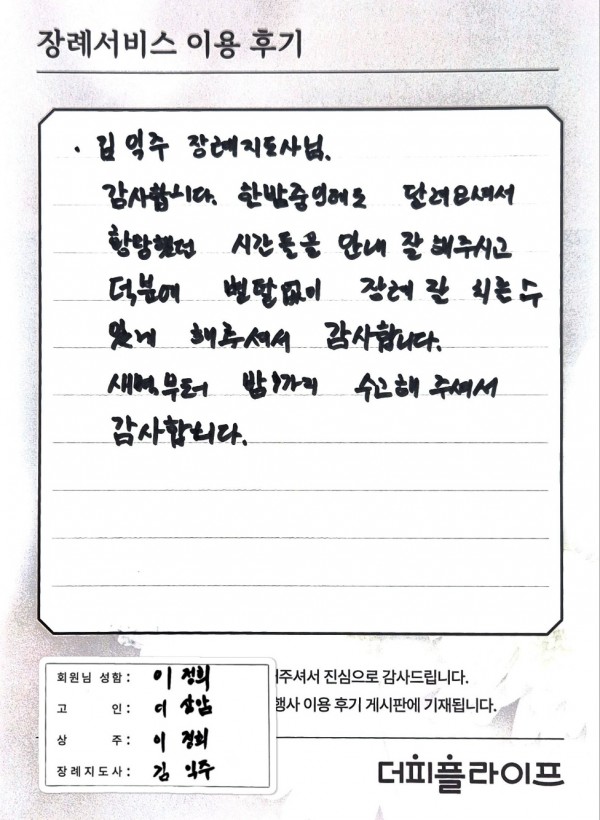 장례서비스 이용 후기
· 김익주 장례지도사님.
감사합니다. 한밤중인데도 달려오셔서
황망했던 시간들을 안내 잘 해주시고
덕분에 별탈없이 장례 잘 치를수
있게 해주셔서 감사합니다.
새벽부터 밤까지 수고해 주셔서
감사합니다.
회원님 성함 : 이정희
고 인 : 이
상 주 : 이정희
장례지도사 : 김익주
주셔서 진심으로 감사드립니다.
행사 이용 후기 게시판에 기재됩니다.
더피플라이프